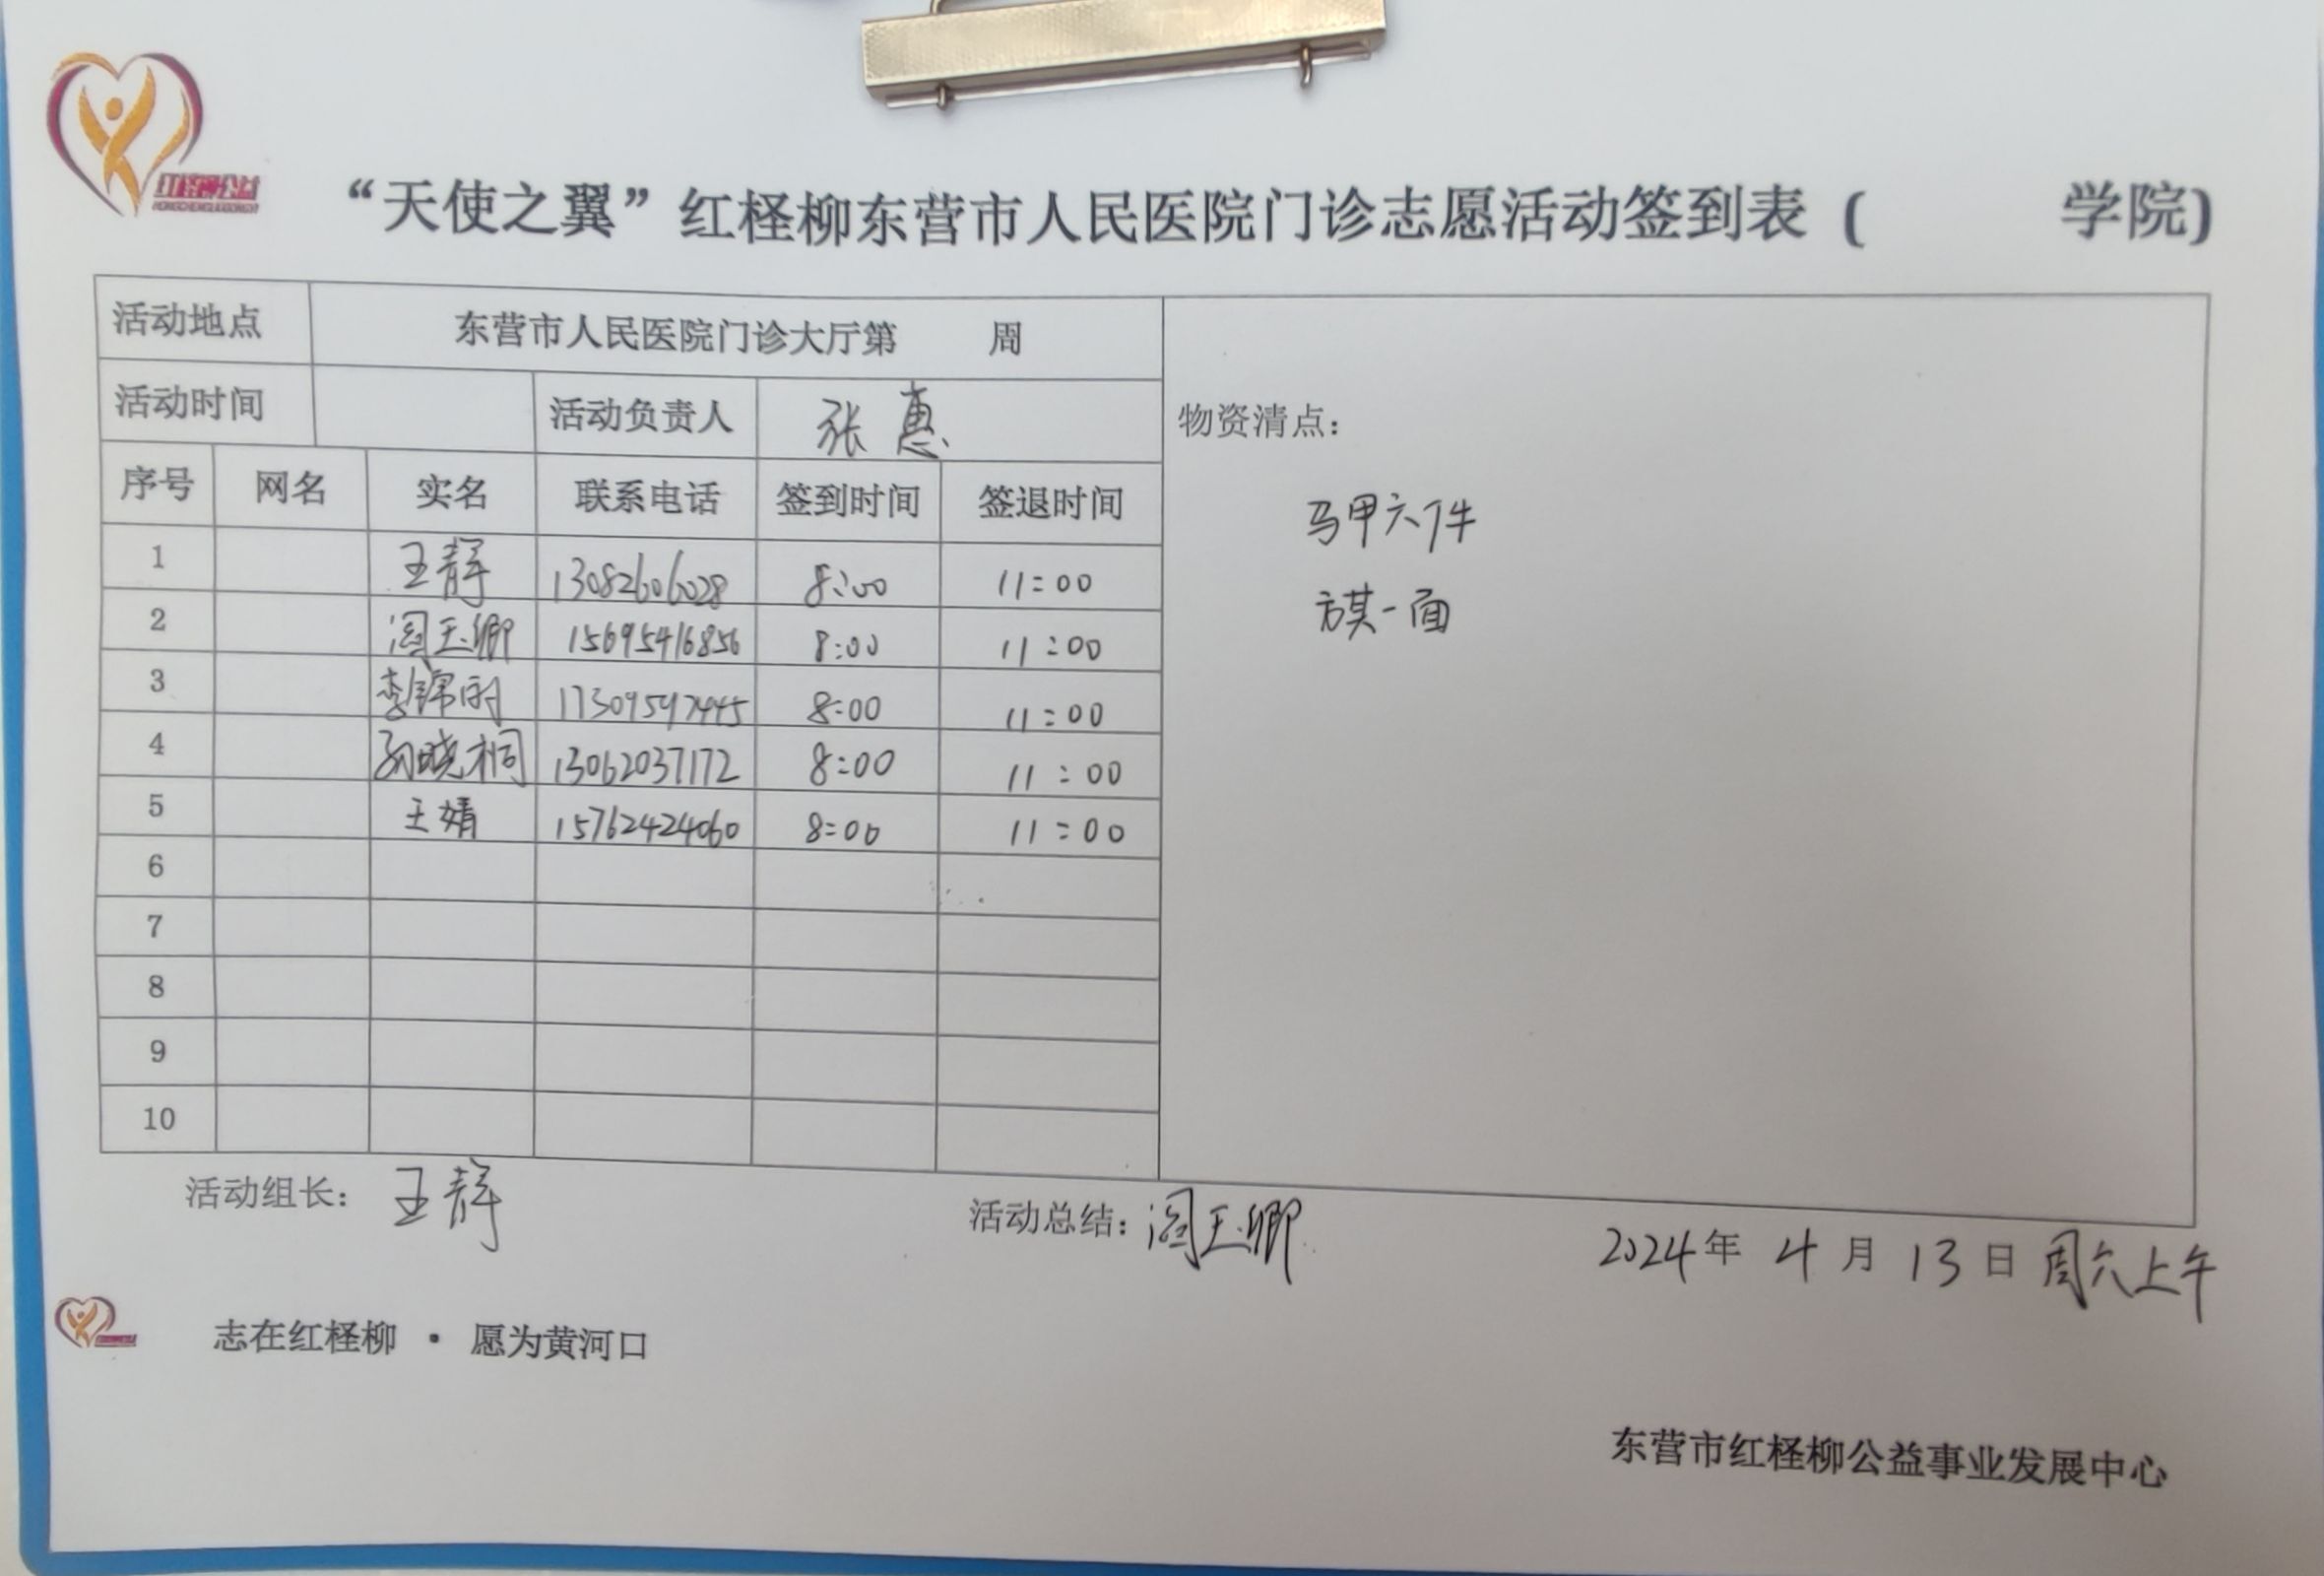 红柽柳公益
“天使之翼”红柽柳东营市人民医院门诊志愿活动签到表 ( 学院)
活动地点 东营市人民医院门诊大厅第 周
活动时间 活动负责人 张惠
物资清点:
序号 网名 实名 联系电话 签到时间 签退时间
马甲六件
旗一面
1 王静 13082606028 8:00 11:00
2 阎玉卿 15695416856 8:00 11:00
3 李锦雨 17309597445 8:00 11:00
4 孙晓桐 13062037172 8:00 11:00
5 王婧 15762424060 8:00 11:00
6
7
8
9
10
活动组长: 王静 活动总结: 阎玉卿
2024年 4 月 13 日 周六上午
志在红柽柳 · 愿为黄河口
东营市红柽柳公益事业发展中心